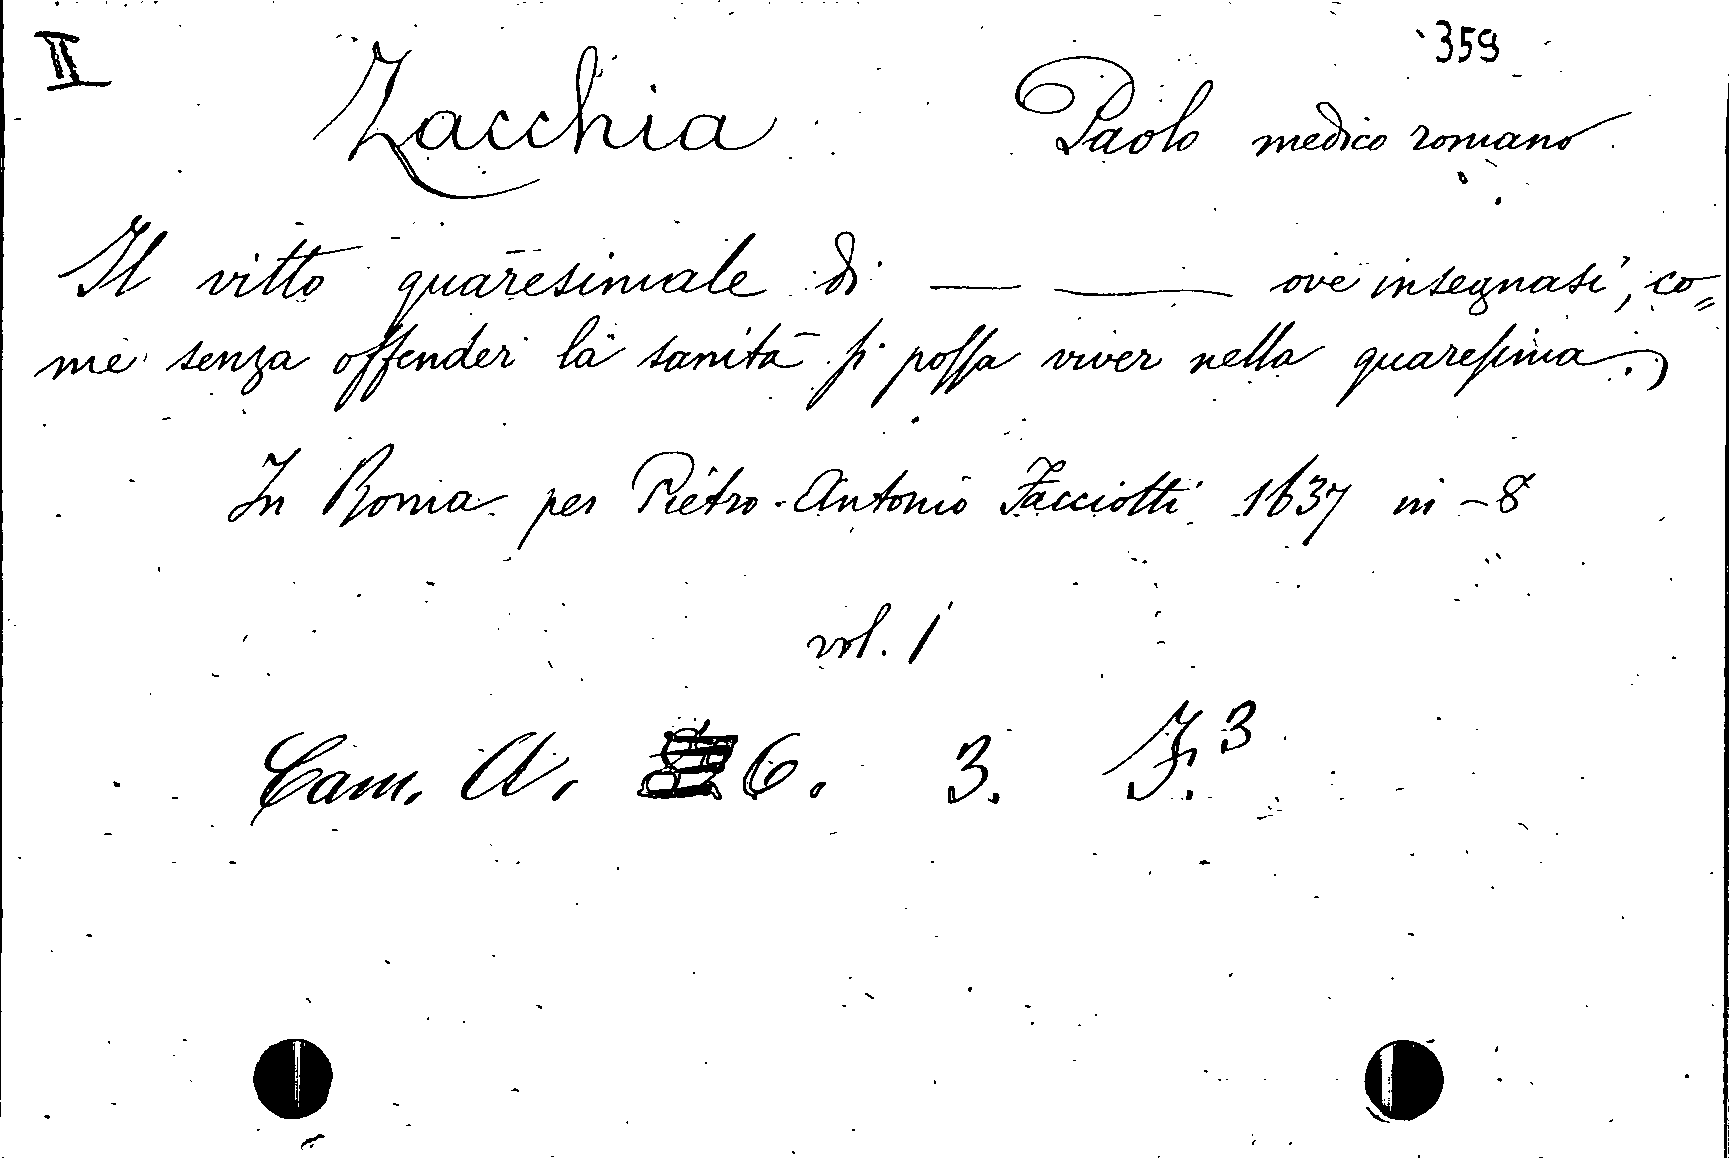 II 359
Zacchia Paolo medico romano
Il vitto quaresimale di — — ove insegnasi, co=
me senza offender la sanità si possa viver nella quaresima.
In Roma per Pietro-Antonio Facciotti 1637 in-8
vol. 1
Cam. A. 6. 3. F.3